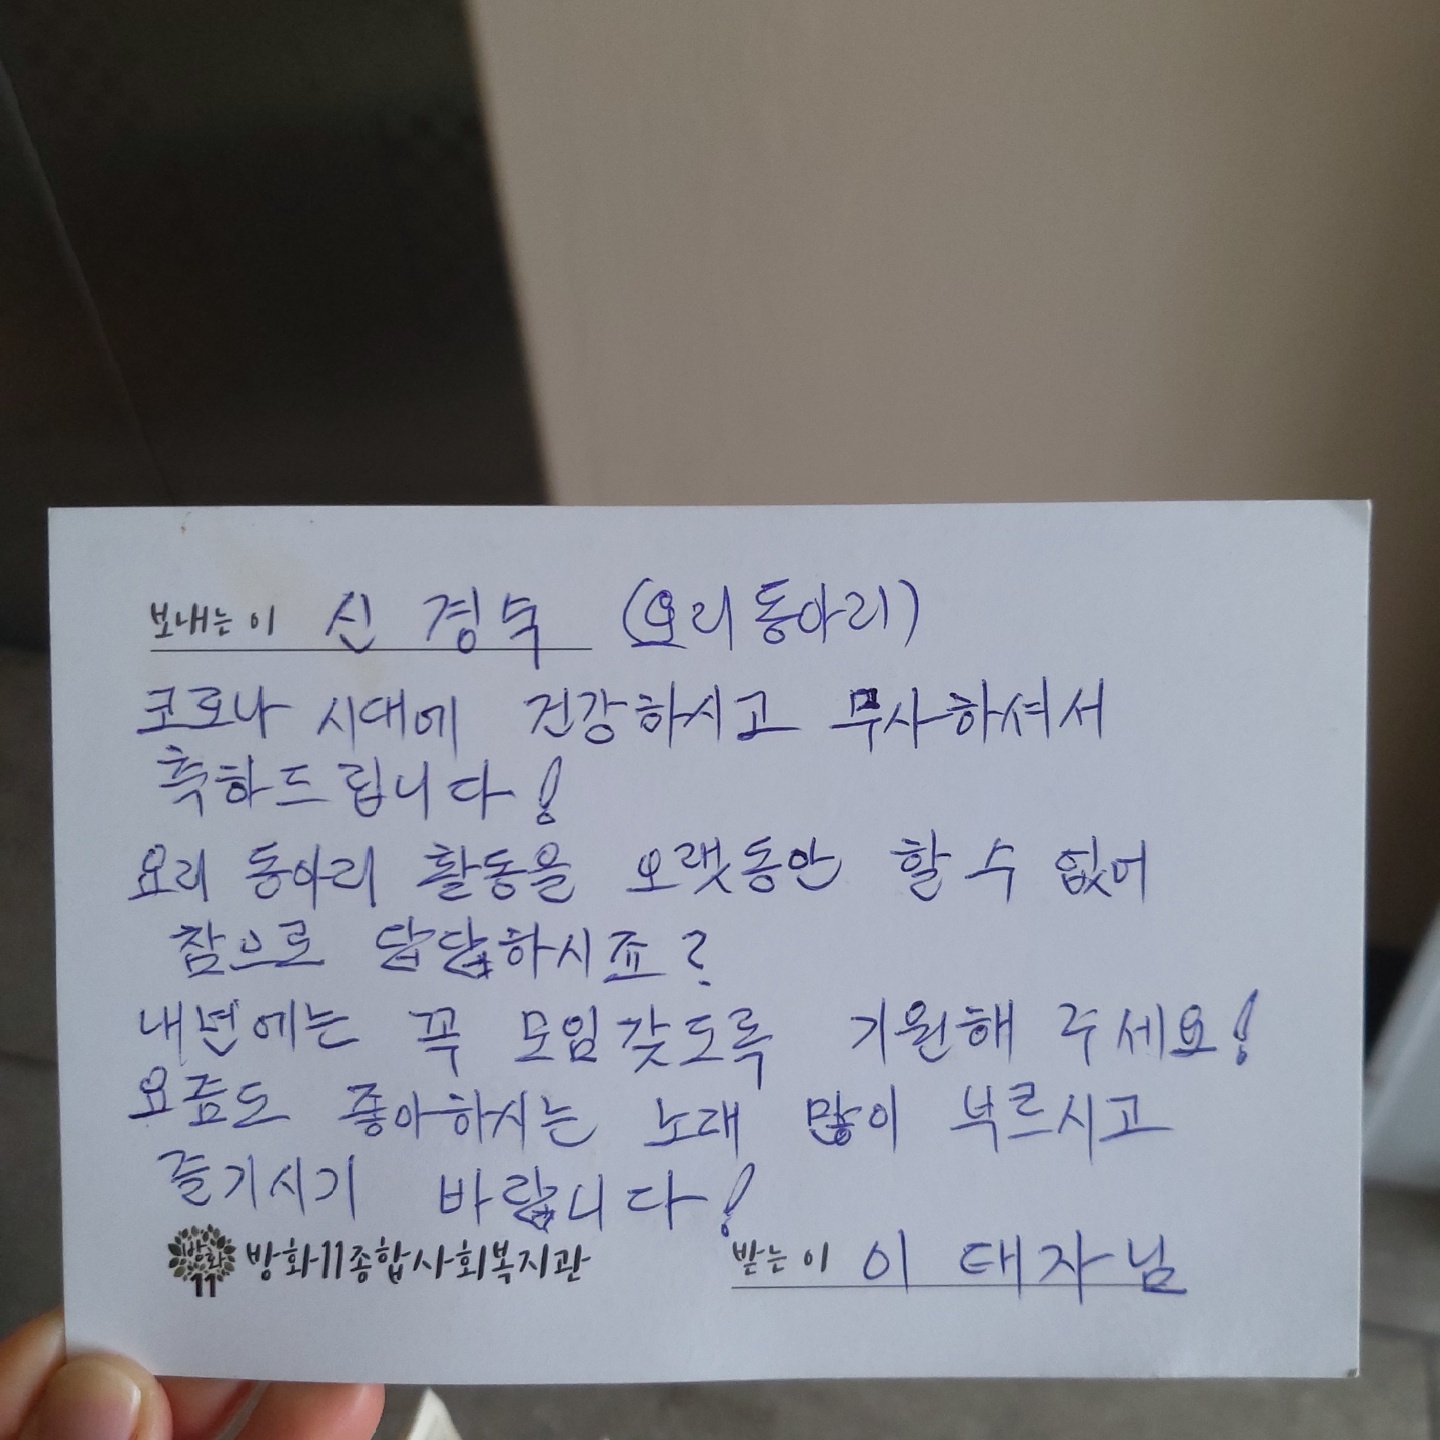 보내는 이 신경숙 (요리동아리)
코로나 시대에 건강하시고 무사하셔서
축하드립니다!
요리 동아리 활동을 오랫동안 할 수 없어
참으로 답답하시죠?
내년에는 꼭 모임갖도록 기원해 주세요!
요즘도 좋아하시는 노래 많이 부르시고
즐기시기 바랍니다!
방화11 방화11종합사회복지관 받는 이 이태자님